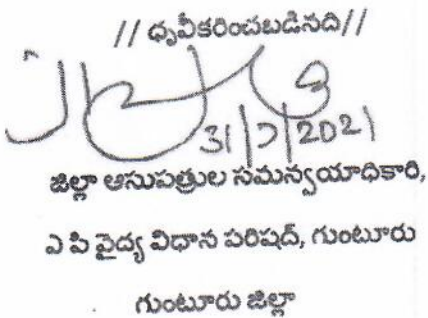 // ధృవీకరించబడినది//
31/7/2021
జిల్లా ఆసుపత్రుల సమన్వయాధికారి,
ఎ పి వైద్య విధాన పరిషద్, గుంటూరు
గుంటూరు జిల్లా